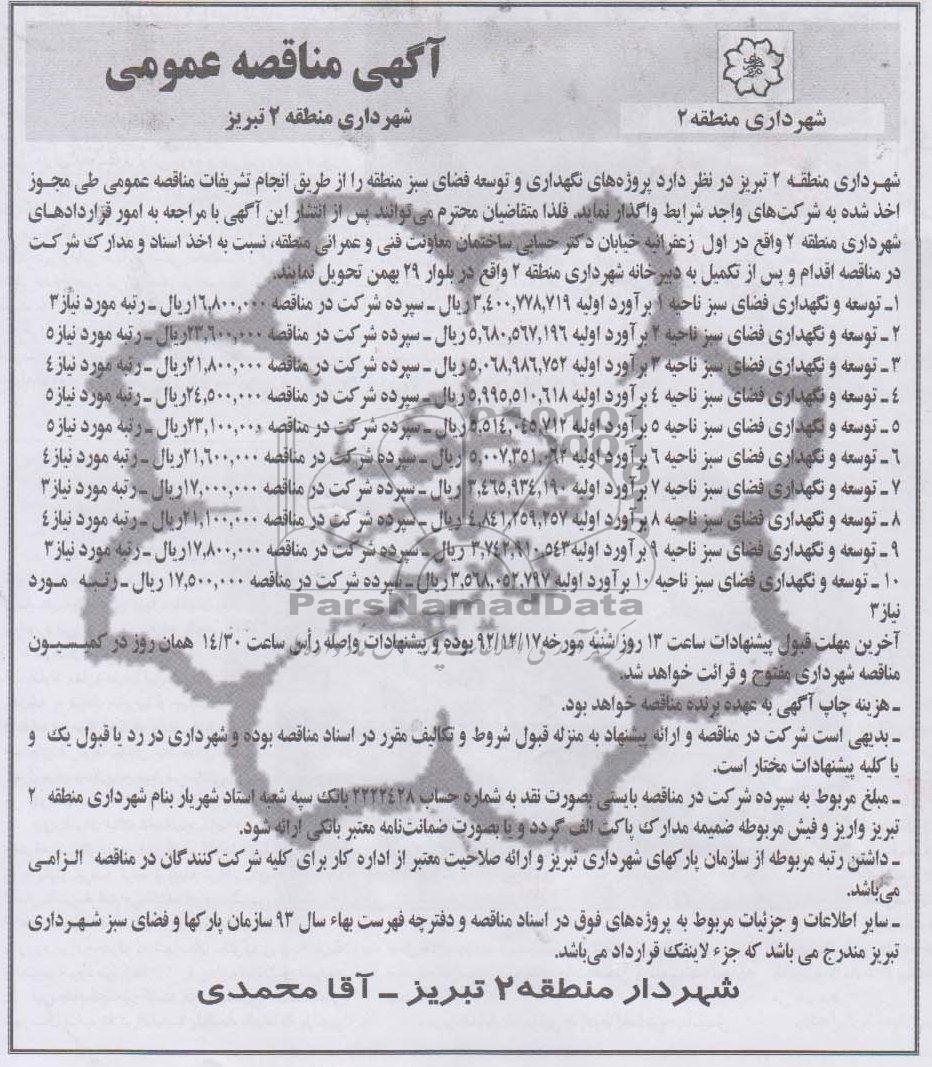 آگهی مناقصه عمومی
شهرداری منطقه ۲ تبریز
شهرداری منطقه۲
شهرداری منطقه ۲ تبریز در نظر دارد پروژه‌های نگهداری و توسعه فضای سبز منطقه را از طریق انجام تشریفات مناقصه عمومی طی مجوز
اخذ شده به شرکت‌های واجد شرایط واگذار نماید. فلذا متقاضیان محترم می‌توانند پس از انتشار این آگهی با مراجعه به امور قراردادهای
شهرداری منطقه ۲ واقع در اول زعفرانیه خیابان دکتر حسابی ساختمان معاونت فنی و عمرانی منطقه، نسبت به اخذ اسناد و مدارک شرکت
در مناقصه اقدام و پس از تکمیل به دبیرخانه شهرداری منطقه ۲ واقع در بلوار ۲۹ بهمن تحویل نمایند.
۱ـ توسعه و نگهداری فضای سبز ناحیه ۱ برآورد اولیه ۳,۴۰۰,۷۷۸,۷۱۹ ریال ـ سپرده شرکت در مناقصه ۱۶,۸۰۰,۰۰۰ریال ـ رتبه مورد نیاز۳
۲ ـ توسعه و نگهداری فضای سبز ناحیه ۲ برآورد اولیه ۵,۶۸۰,۵۶۷,۱۹۶ ریال ـ سپرده شرکت در مناقصه ۲۳,۶۰۰,۰۰۰ریال ـ رتبه مورد نیاز۵
۳ ـ توسعه و نگهداری فضای سبز ناحیه ۳ برآورد اولیه ۵,۰۶۸,۹۸۶,۷۵۲ ریال ـ سپرده شرکت در مناقصه ۲۱,۸۰۰,۰۰۰ریال ـ رتبه مورد نیاز ۴
۴ ـ توسعه و نگهداری فضای سبز ناحیه ۴ برآورد اولیه ۵,۹۹۵,۵۱۰,۶۱۸ ریال ـ سپرده شرکت در مناقصه ۲۴,۵۰۰,۰۰۰ریال ـ رتبه مورد نیاز۵
۵ ـ توسعه و نگهداری فضای سبز ناحیه ۵ برآورد اولیه ۵,۵۱۴,۰۴۵,۷۱۲ ریال ـ سپرده شرکت در مناقصه ۲۳,۱۰۰,۰۰۰ریال ـ رتبه مورد نیاز۵
۶ ـ توسعه و نگهداری فضای سبز ناحیه ۶ برآورد اولیه ۵,۰۰۷,۳۵۱,۰۶۲ ریال ـ سپرده شرکت در مناقصه ۲۱,۶۰۰,۰۰۰ریال ـ رتبه مورد نیاز۴
۷ ـ توسعه و نگهداری فضای سبز ناحیه ۷ برآورد اولیه ۳,۴۶۵,۹۳۴,۱۹۰ ریال ـ سپرده شرکت در مناقصه ۱۷,۰۰۰,۰۰۰ریال ـ رتبه مورد نیاز۳
۸ ـ توسعه و نگهداری فضای سبز ناحیه ۸ برآورد اولیه ۴,۸۴۱,۲۵۹,۲۵۷ ریال ـ سپرده شرکت در مناقصه ۲۱,۱۰۰,۰۰۰ریال ـ رتبه مورد نیاز۴
۹ ـ توسعه و نگهداری فضای سبز ناحیه ۹ برآورد اولیه۳,۷۴۲,۸۱۰,۵۴۳ ریال ـ سپرده شرکت در مناقصه ۱۷,۸۰۰,۰۰۰ریال ـ رتبه مورد نیاز۳
۱۰ ـ توسعه و نگهداری فضای سبز ناحیه ۱۰ برآورد اولیه ۳,۵۶۸,۰۵۲,۷۹۷ ریال ـ سپرده شرکت در مناقصه ۱۷,۵۰۰,۰۰۰ ریال ـ رتبه مورد
نیاز۳
ParsNamadData
آخرین مهلت قبول پیشنهادات ساعت ۱۳ روز شنبه مورخه ۹۲/۱۲/۱۷ بوده و پیشنهادات واصله رأس ساعت ۱۴/۳۰ همان روز در کمیسیون
مناقصه شهرداری مفتوح و قرائت خواهد شد.
ـ هزینه چاپ آگهی به عهده برنده مناقصه خواهد بود.
ـ بدیهی است شرکت در مناقصه و ارائه پیشنهاد به منزله قبول شروط و تکالیف مقرر در اسناد مناقصه بوده و شهرداری در رد یا قبول یک و
یا کلیه پیشنهادات مختار است.
ـ مبلغ مربوط به سپرده شرکت در مناقصه بایستی بصورت نقد به شماره حساب ۲۲۲۲۴۲۸ بانک سپه شعبه استاد شهریار بنام شهرداری منطقه ۲
تبریز واریز و فیش مربوطه ضمیمه مدارک پاکت الف گردد و یا بصورت ضمانت‌نامه معتبر بانکی ارائه شود.
ـ داشتن رتبه مربوطه از سازمان پارکهای شهرداری تبریز و ارائه صلاحیت معتبر از اداره کار برای کلیه شرکت‌کنندگان در مناقصه الزامی
می‌باشد.
ـ سایر اطلاعات و جزئیات مربوط به پروژه‌های فوق در اسناد مناقصه و دفترچه فهرست بهاء سال ۹۳ سازمان پارکها و فضای سبز شهرداری
تبریز مندرج می باشد که جزء لاینفک قرارداد می‌باشد.
شهردار منطقه۲ تبریز ـ آقا محمدی